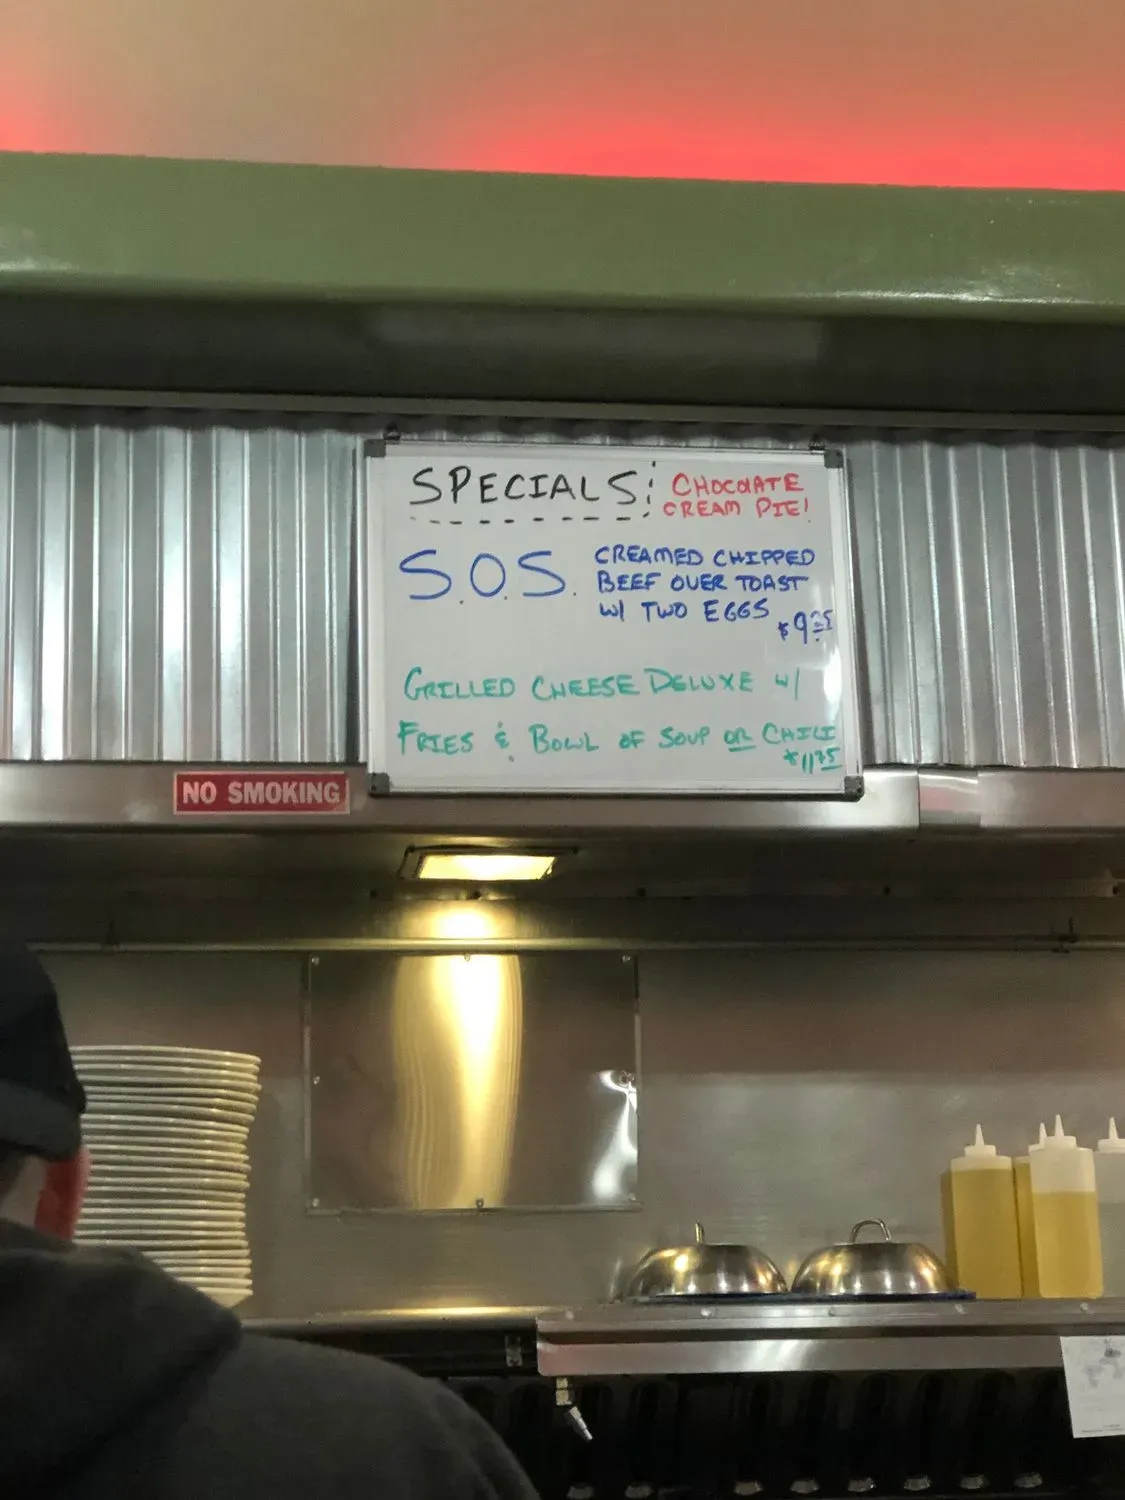 SPECIALS
CHOCOLATE
CREAM PIE!
S.O.S.
CREAMED CHIPPED
BEEF OVER TOAST
W/ TWO EGGS
$9.25
GRILLED CHEESE DELUXE W/
FRIES & BOWL OF SOUP OR CHILI
$11.75
NO SMOKING